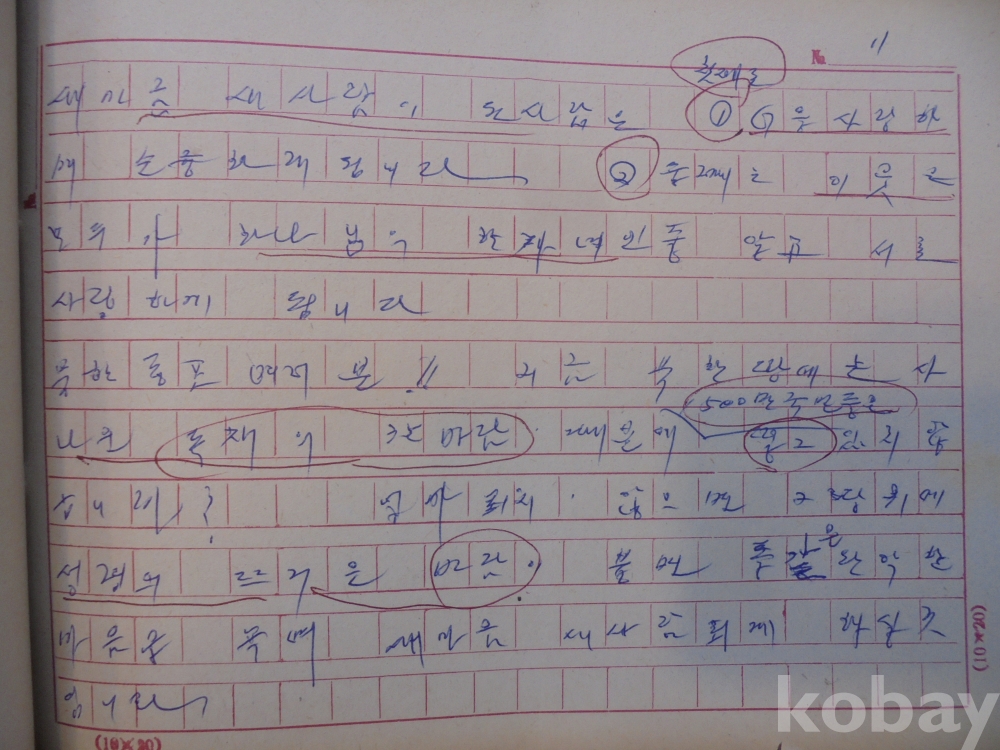 № 11
첫째로
새마음 새사람이 된 사람은 ① 사랑하
며 됩니다 ② 둘째는 이웃은
모두가 하나님의 한 자녀인줄 알고 서로
사랑하게 됩니다
북한 동포 여러분!! 지금 북한 땅에는 사
500만
나운 독재의 때문에 떨고 있지 않
습니까? 않으면 그 땅위에
성령의 뜨거운 바람 불면 완악한
마음을 녹여 새마음 새사람 되게 하실것
입니다
(10×20)
(10×20)
kobay